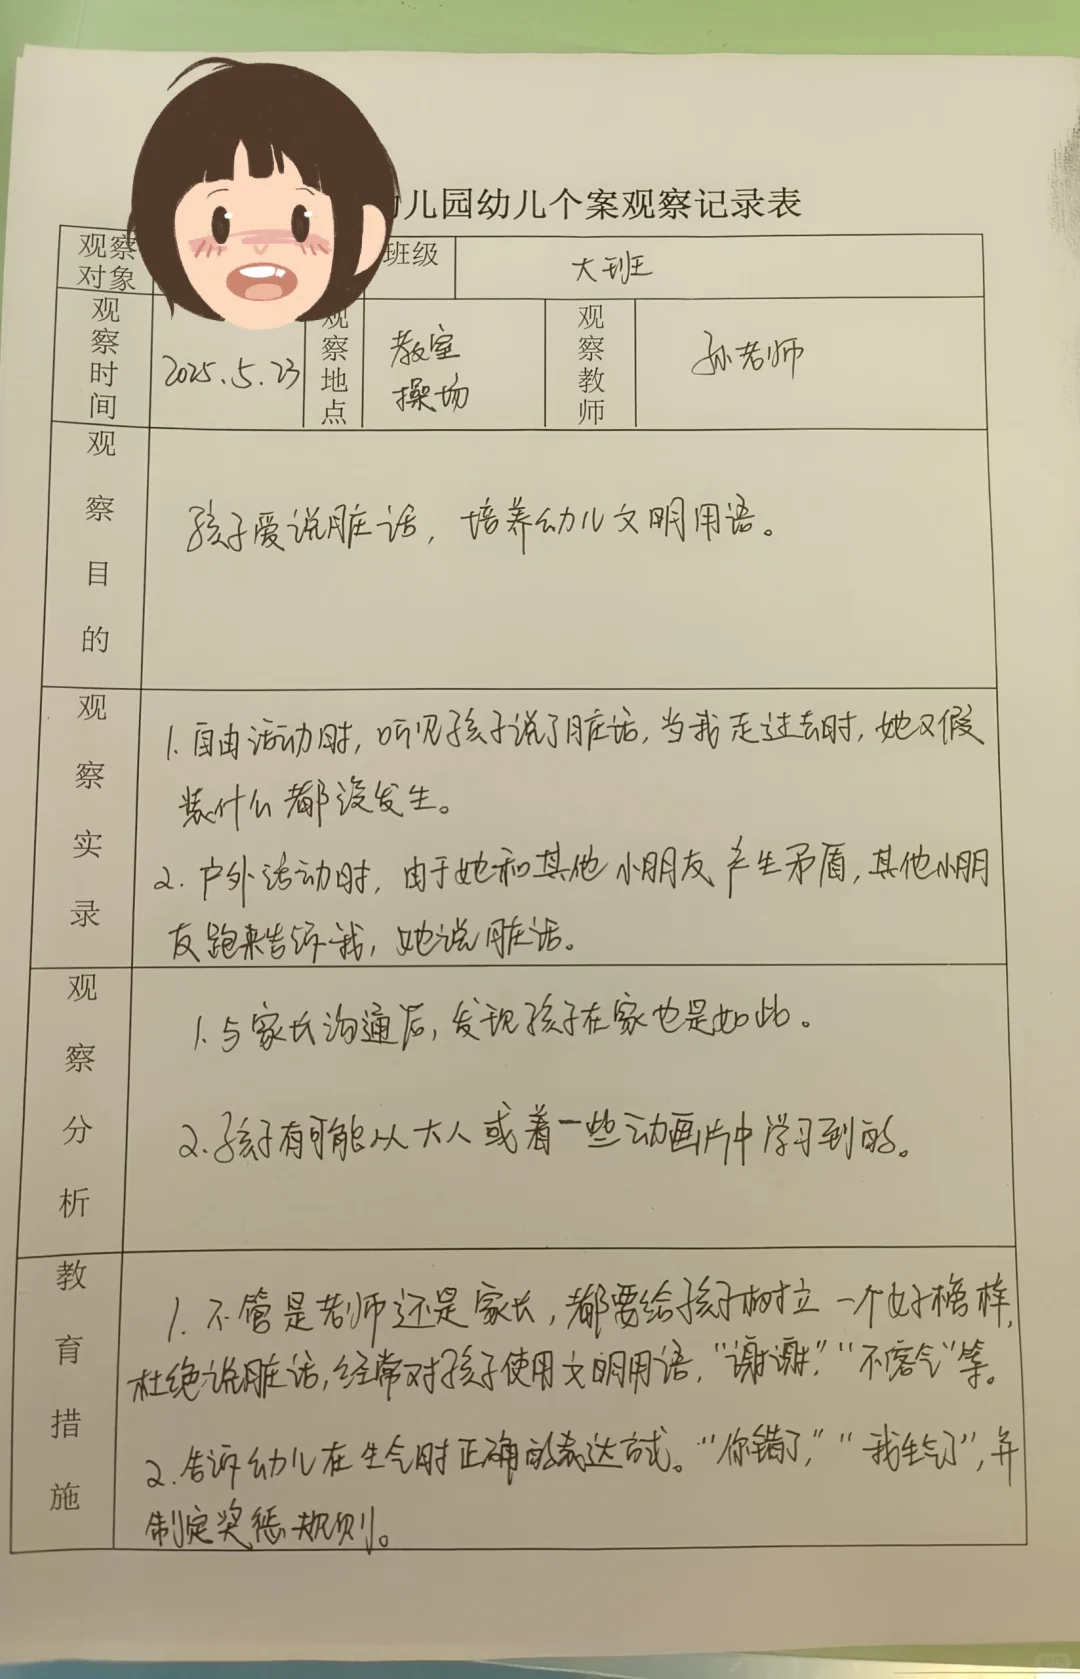 儿园幼儿个案观察记录表
观察对象 班级 大班
观察时间 2025.5.23 观察地点 教室 操场 观察教师 孙老师
观察目的
孩子爱说脏话，培养幼儿文明用语。
观察实录
1. 自由活动时，听见孩子说了脏话，当我走过去时，她又假
装什么都没发生。
2. 户外活动时，由于她和其他小朋友产生矛盾，其他小朋
友跑来告诉我，她说脏话。
观察分析
1. 与家长沟通后，发现孩子在家也是如此。
2. 孩子有可能从大人或着一些动画片中学习到的。
教育措施
1. 不管是老师还是家长，都要给孩子树立一个好榜样，
杜绝说脏话，经常对孩子使用文明用语，“谢谢，”“不客气”等。
2. 告诉幼儿在生气时正确的表达方式。“你错了，”“我生气了”，并
制定奖惩规则。